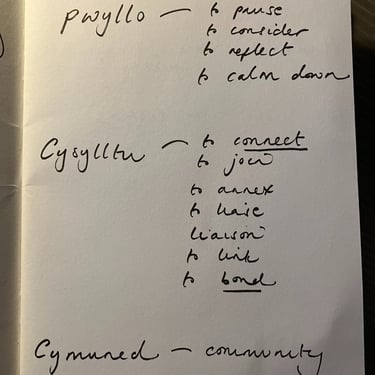 pwyllo – to pause
to consider
to reflect
to calm down
Cysylltu – to connect
to join
to annex
to liaise
liaison
to link
to bond
Cymuned – community